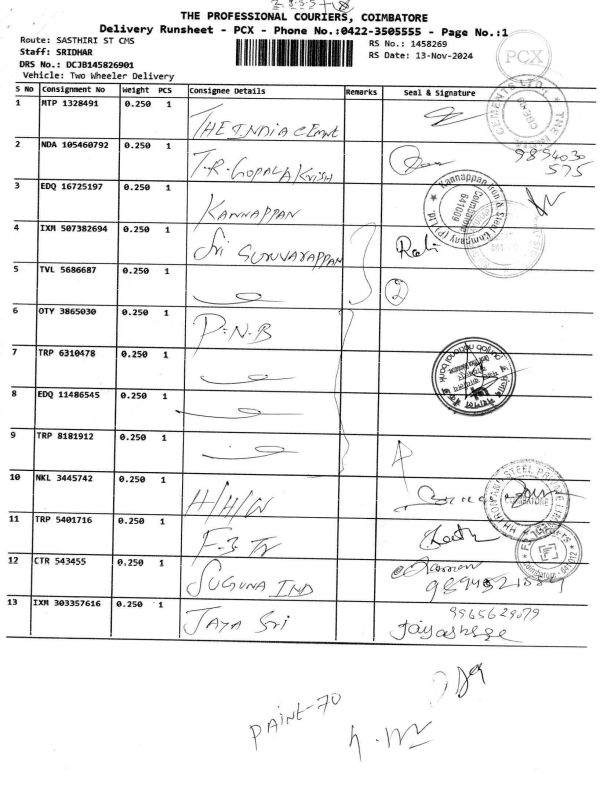 THE PROFESSIONAL COURIERS, COIMBATORE
Delivery Runsheet - PCX - Phone No.:0422-3505555 - Page No.:1
Route: SASTHIRI ST CMS
RS No.: 1458269
Staff: SRIDHAR
RS Date: 13-Nov-2024
DRS No.: DCJB145826901
Vehicle: Two Wheeler Delivery
PCX
S No Consignment No Weight PCS Consignee Details Remarks Seal & Signature
1 MTP 1328491 0.250 1 THE INDIA CEmnt
2 NDA 105460792 0.250 1 T.R. GOPALA Krish 9894030
575
3 EDQ 16725197 0.250 1 KANNAPPAN
Kannappan Iron & Steel Company (P) Ltd. Coimbatore 641009
4 IXM 507382694 0.250 1 Sri GURUVARAPPAN
5 TVL 5686687 0.250 1 2
6 OTY 3865030 0.250 1 P.N.B
7 TRP 6310478 0.250 1
punjab national bank
8 EDQ 11486545 0.250 1
9 TRP 8181912 0.250 1
10 NKL 3445742 0.250 1 H/H/W
11 TRP 5401716 0.250 1 F-3 Tr
12 CTR 543455 0.250 1 SUGUNA IND
13 IXM 303357616 0.250 1 JAYA Sri 9965629079
Jayashree
PAINT-70